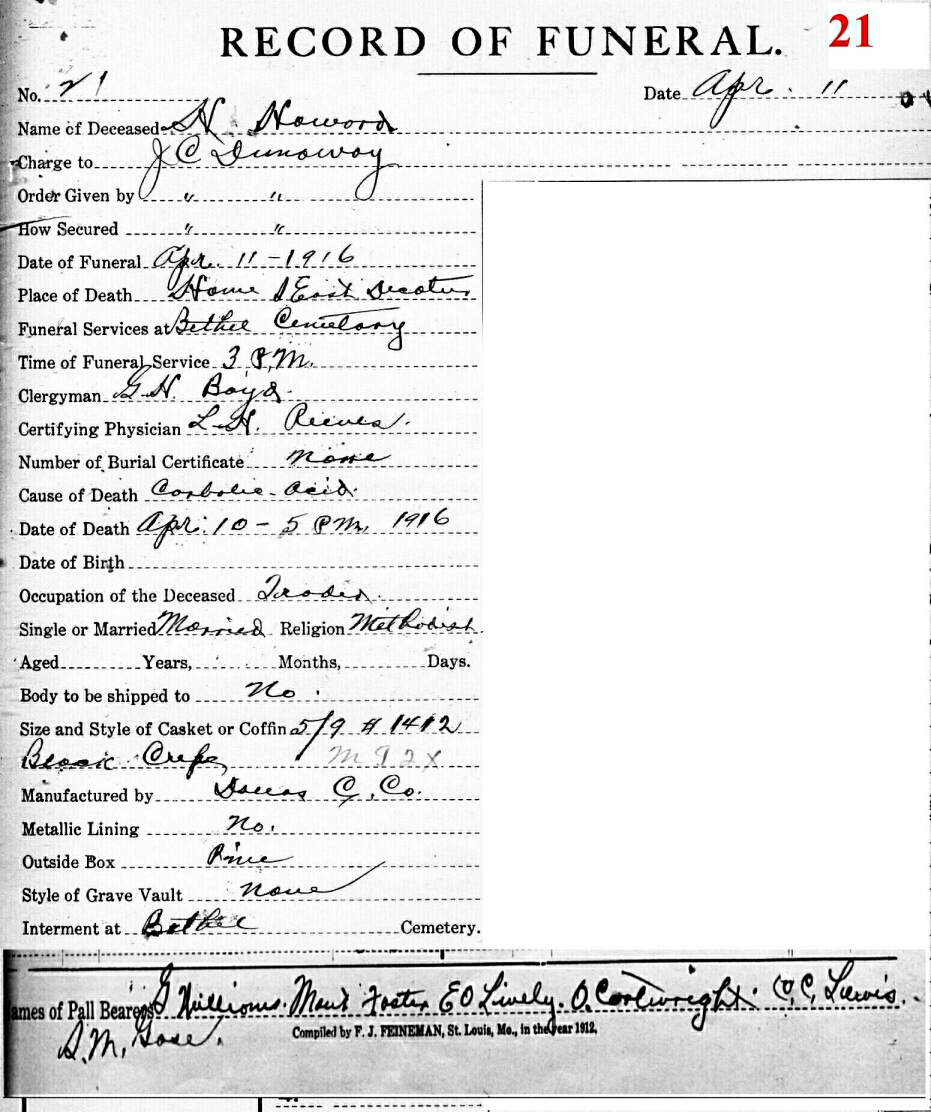 RECORD OF FUNERAL. 21
No. 21 Date Apr. 11
Name of Deceased H. Howard
Charge to J C Dunaway
Order Given by " "
How Secured " "
Date of Funeral Apr. 11-1916
Place of Death Home East Decatur
Funeral Services at Bethel Cemetary
Time of Funeral Service 3 P.M.
Clergyman G.H. Boyd.
Certifying Physician L.H. Reeves.
Number of Burial Certificate none
Cause of Death Carbolic-acid.
Date of Death Apr. 10-5 P M, 1916
Date of Birth
Occupation of the Deceased Trader.
Single or Married Married Religion Methodist
Aged Years, Months, Days.
Body to be shipped to No.
Size and Style of Casket or Coffin 5/9 # 1412
Black Crepe M 92X
Manufactured by Dallas C. Co.
Metallic Lining No.
Outside Box Pine
Style of Grave Vault none
Interment at Bethel Cemetery.
ames of Pall Bearers G Williams. Foster E O Lively. O. Cartwright. C. C. Lewis.
Compiled by F. J. FEINEMAN, St. Louis, Mo., in the year 1912.
S.M. Gose.